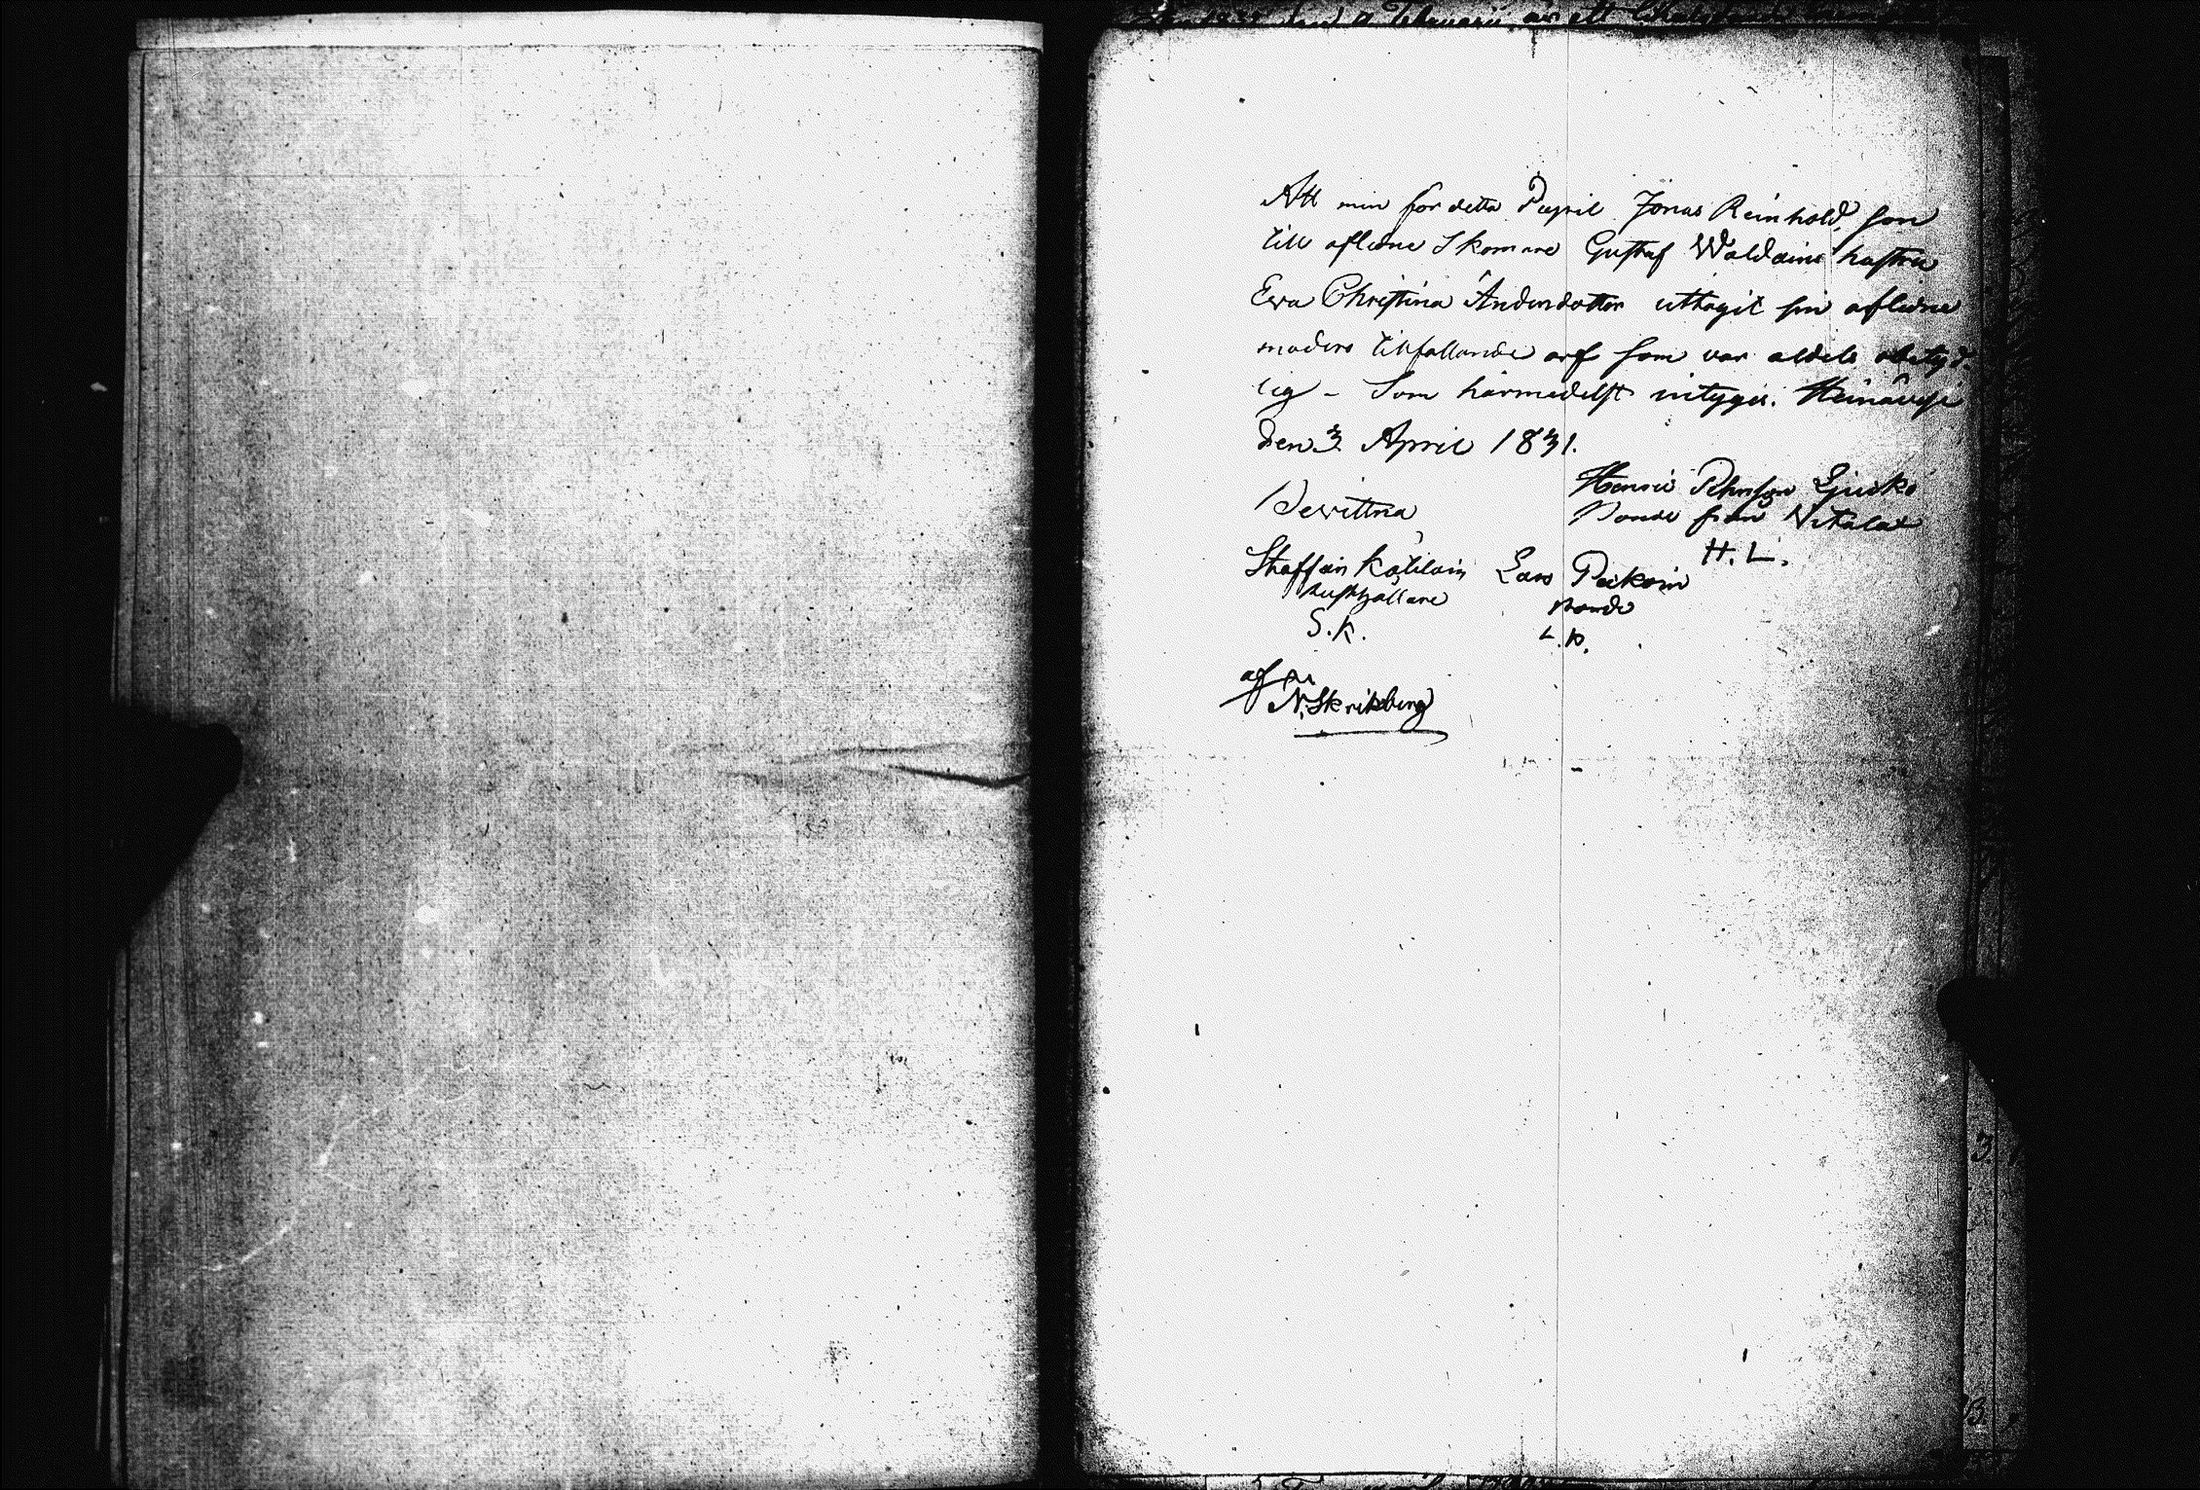 Att min för detta Pupil Jonas Reinhold, son
till aflidne Skomare Gustaf Waldains hustru
Eva Christina Andersdotter uttagit sin aflidne
moders tillfallande arf som var aldels obetyd-
lig - Som härmedelst intygas. Heinävesi
den 3 April 1831.
Henric Pehrsson
Bonde från Vihtalax
H. L.
Bevittna
Staffan Kotilain Lars Pakarin
Lusthållare Bonde
S. K. L. P.
af
N. Skriksberg